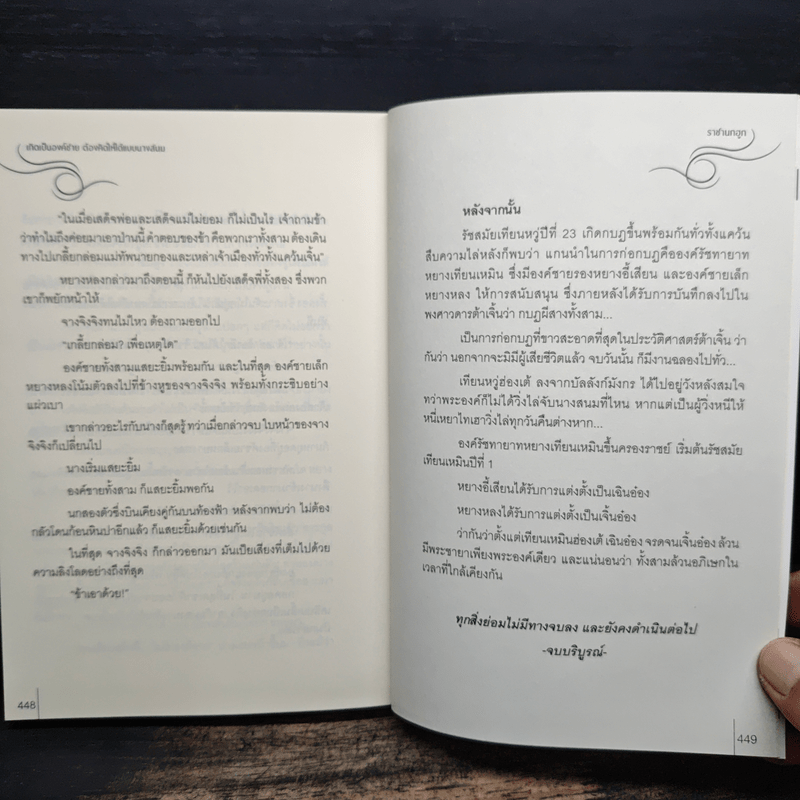 เกิดเป็นองค์ชาย ต้องคิดให้ได้แบบนางสนม
"ในเมื่อเสด็จพ่อและเสด็จแม่ไม่ยอม ก็ไม่เป็นไร เจ้าถามข้า
ว่าทำไมถึงค่อยมาเอาป่านนี้ คำตอบของข้า คือพวกเราทั้งสาม ต้องเดิน
ทางไปเกลี้ยกล่อมแม่ทัพนายกองและเหล่าเจ้าเมืองทั่วทั้งแคว้นเจิ้น"
หยางหลงกล่าวมาถึงตอนนี้ ก็หันไปยังเสด็จพี่ทั้งสอง ซึ่งพวก
เขาก็พยักหน้าให้
จางจิงจิงทนไม่ไหว ต้องถามออกไป
"เกลี้ยกล่อม? เพื่อเหตุใด"
องค์ชายทั้งสามแสยะยิ้มพร้อมกัน และในที่สุด องค์ชายเล็ก
หยางหลงโน้มตัวลงไปที่ข้างหูของจางจิงจิง พร้อมทั้งกระซิบอย่าง
แผ่วเบา
เขากล่าวอะไรกับนางก็สุดรู้ ทว่าเมื่อกล่าวจบ ใบหน้าของจาง
จิงจิงก็เปลี่ยนไป
นางเริ่มแสยะยิ้ม
องค์ชายทั้งสาม ก็แสยะยิ้มพอกัน
นกสองตัวซึ่งบินเคียงคู่กันบนท้องฟ้า หลังจากพบว่า ไม่ต้อง
กลัวโดนก้อนหินปาอีกแล้ว ก็แสยะยิ้มด้วยเช่นกัน
ในที่สุด จางจิงจิง ก็กล่าวออกมา มันเปี่ยเสียงที่เต็มไปด้วย
ความลิงโลดอย่างถึงที่สุด
"ข้าเอาด้วย!"
448
ราชานกฮูก
หลังจากนั้น
รัชสมัยเทียนหวู่ปีที่ 23 เกิดกบฏขึ้นพร้อมกันทั่วทั้งแคว้น
สืบความไล่หลังก็พบว่า แกนนำในการก่อกบฏคือองค์รัชทายาท
หยางเทียนเหมิน ซึ่งมีองค์ชายรองหยางอี้เสียน และองค์ชายเล็ก
หยางหลง ให้การสนับสนุน ซึ่งภายหลังได้รับการบันทึกลงไปใน
พงศาวดารต้าเจิ้นว่า กบฏผีสางทั้งสาม...
เป็นการก่อกบฏที่ขาวสะอาดที่สุดในประวัติศาสตร์ต้าเจิ้น ว่า
กันว่า นอกจากจะมิมีผู้เสียชีวิตแล้ว จบวันนั้น ก็มีงานฉลองไปทั่ว...
เทียนหวู่ฮ่องเต้ ลงจากบัลลังก์มังกร ได้ไปอยู่วังหลังสมใจ
ทว่าพระองค์ก็ไม่ได้วิ่งไล่จับนางสนมที่ไหน หากแต่เป็นผู้วิ่งหนีให้
หนี่เหยาไทเฮาวิ่งไล่ทุกวันคืนต่างหาก...
องค์รัชทายาทหยางเทียนเหมินขึ้นครองราชย์ เริ่มต้นรัชสมัย
เทียนเหมินปีที่ 1
หยางอี้เสียนได้รับการแต่งตั้งเป็นเฉินอ๋อง
หยางหลงได้รับการแต่งตั้งเป็นเจิ้นอ๋อง
ว่ากันว่าตั้งแต่เทียนเหมินฮ่องเต้ เฉินอ๋อง จรดจนเจิ้นอ๋อง ล้วน
มีพระชายาเพียงพระองค์เดียว และแน่นอนว่า ทั้งสามล้วนอภิเษกใน
เวลาที่ใกล้เคียงกัน
ทุกสิ่งย่อมไม่มีทางจบลง และยังคงดำเนินต่อไป
-จบบริบูรณ์-
449